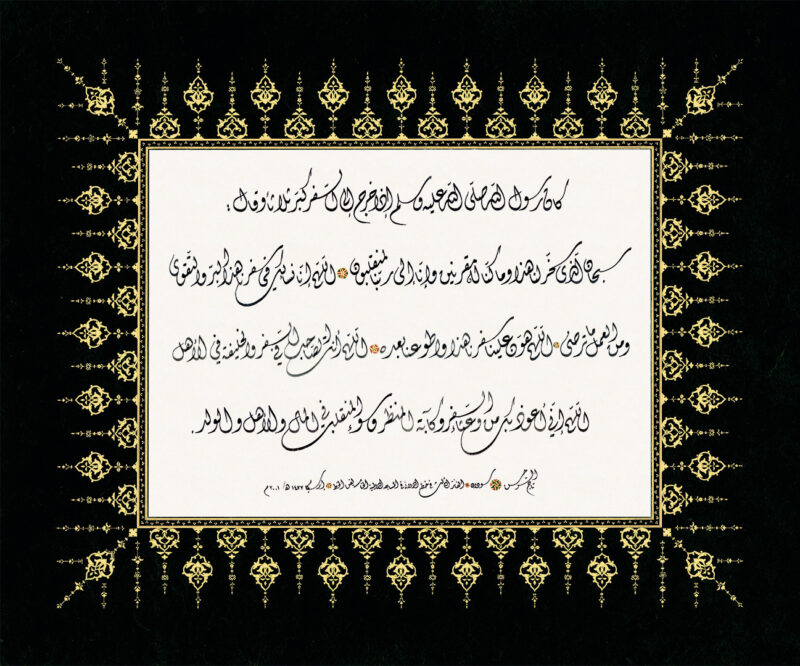 كان رسول الله صلى الله عليه وسلم إذا خرج إلى السفر كبر ثلاثا وقال :
سبحان الذي سخر لنا هذا وما كنا له مقرنين وإنا إلى ربنا لمنقلبون اللهم إنا نسألك في سفرنا هذا البر والتقوى
ومن العمل ما ترضى اللهم هون علينا سفرنا هذا واطو عنا بعده اللهم أنت الصاحب في السفر والخليفة في الأهل
اللهم إني أعوذ بك من وعثاء السفر وكآبة المنظر وسوء المنقلب في المال والأهل والولد .
تاج السر حسن إرسيكا ١٤٢٢ه / ٢٠٠١م